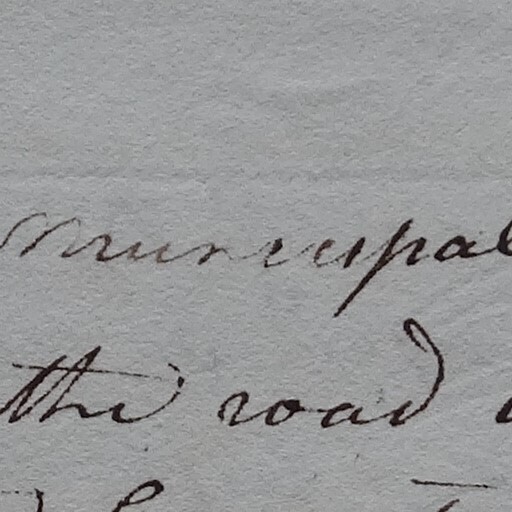 Municipal
the road